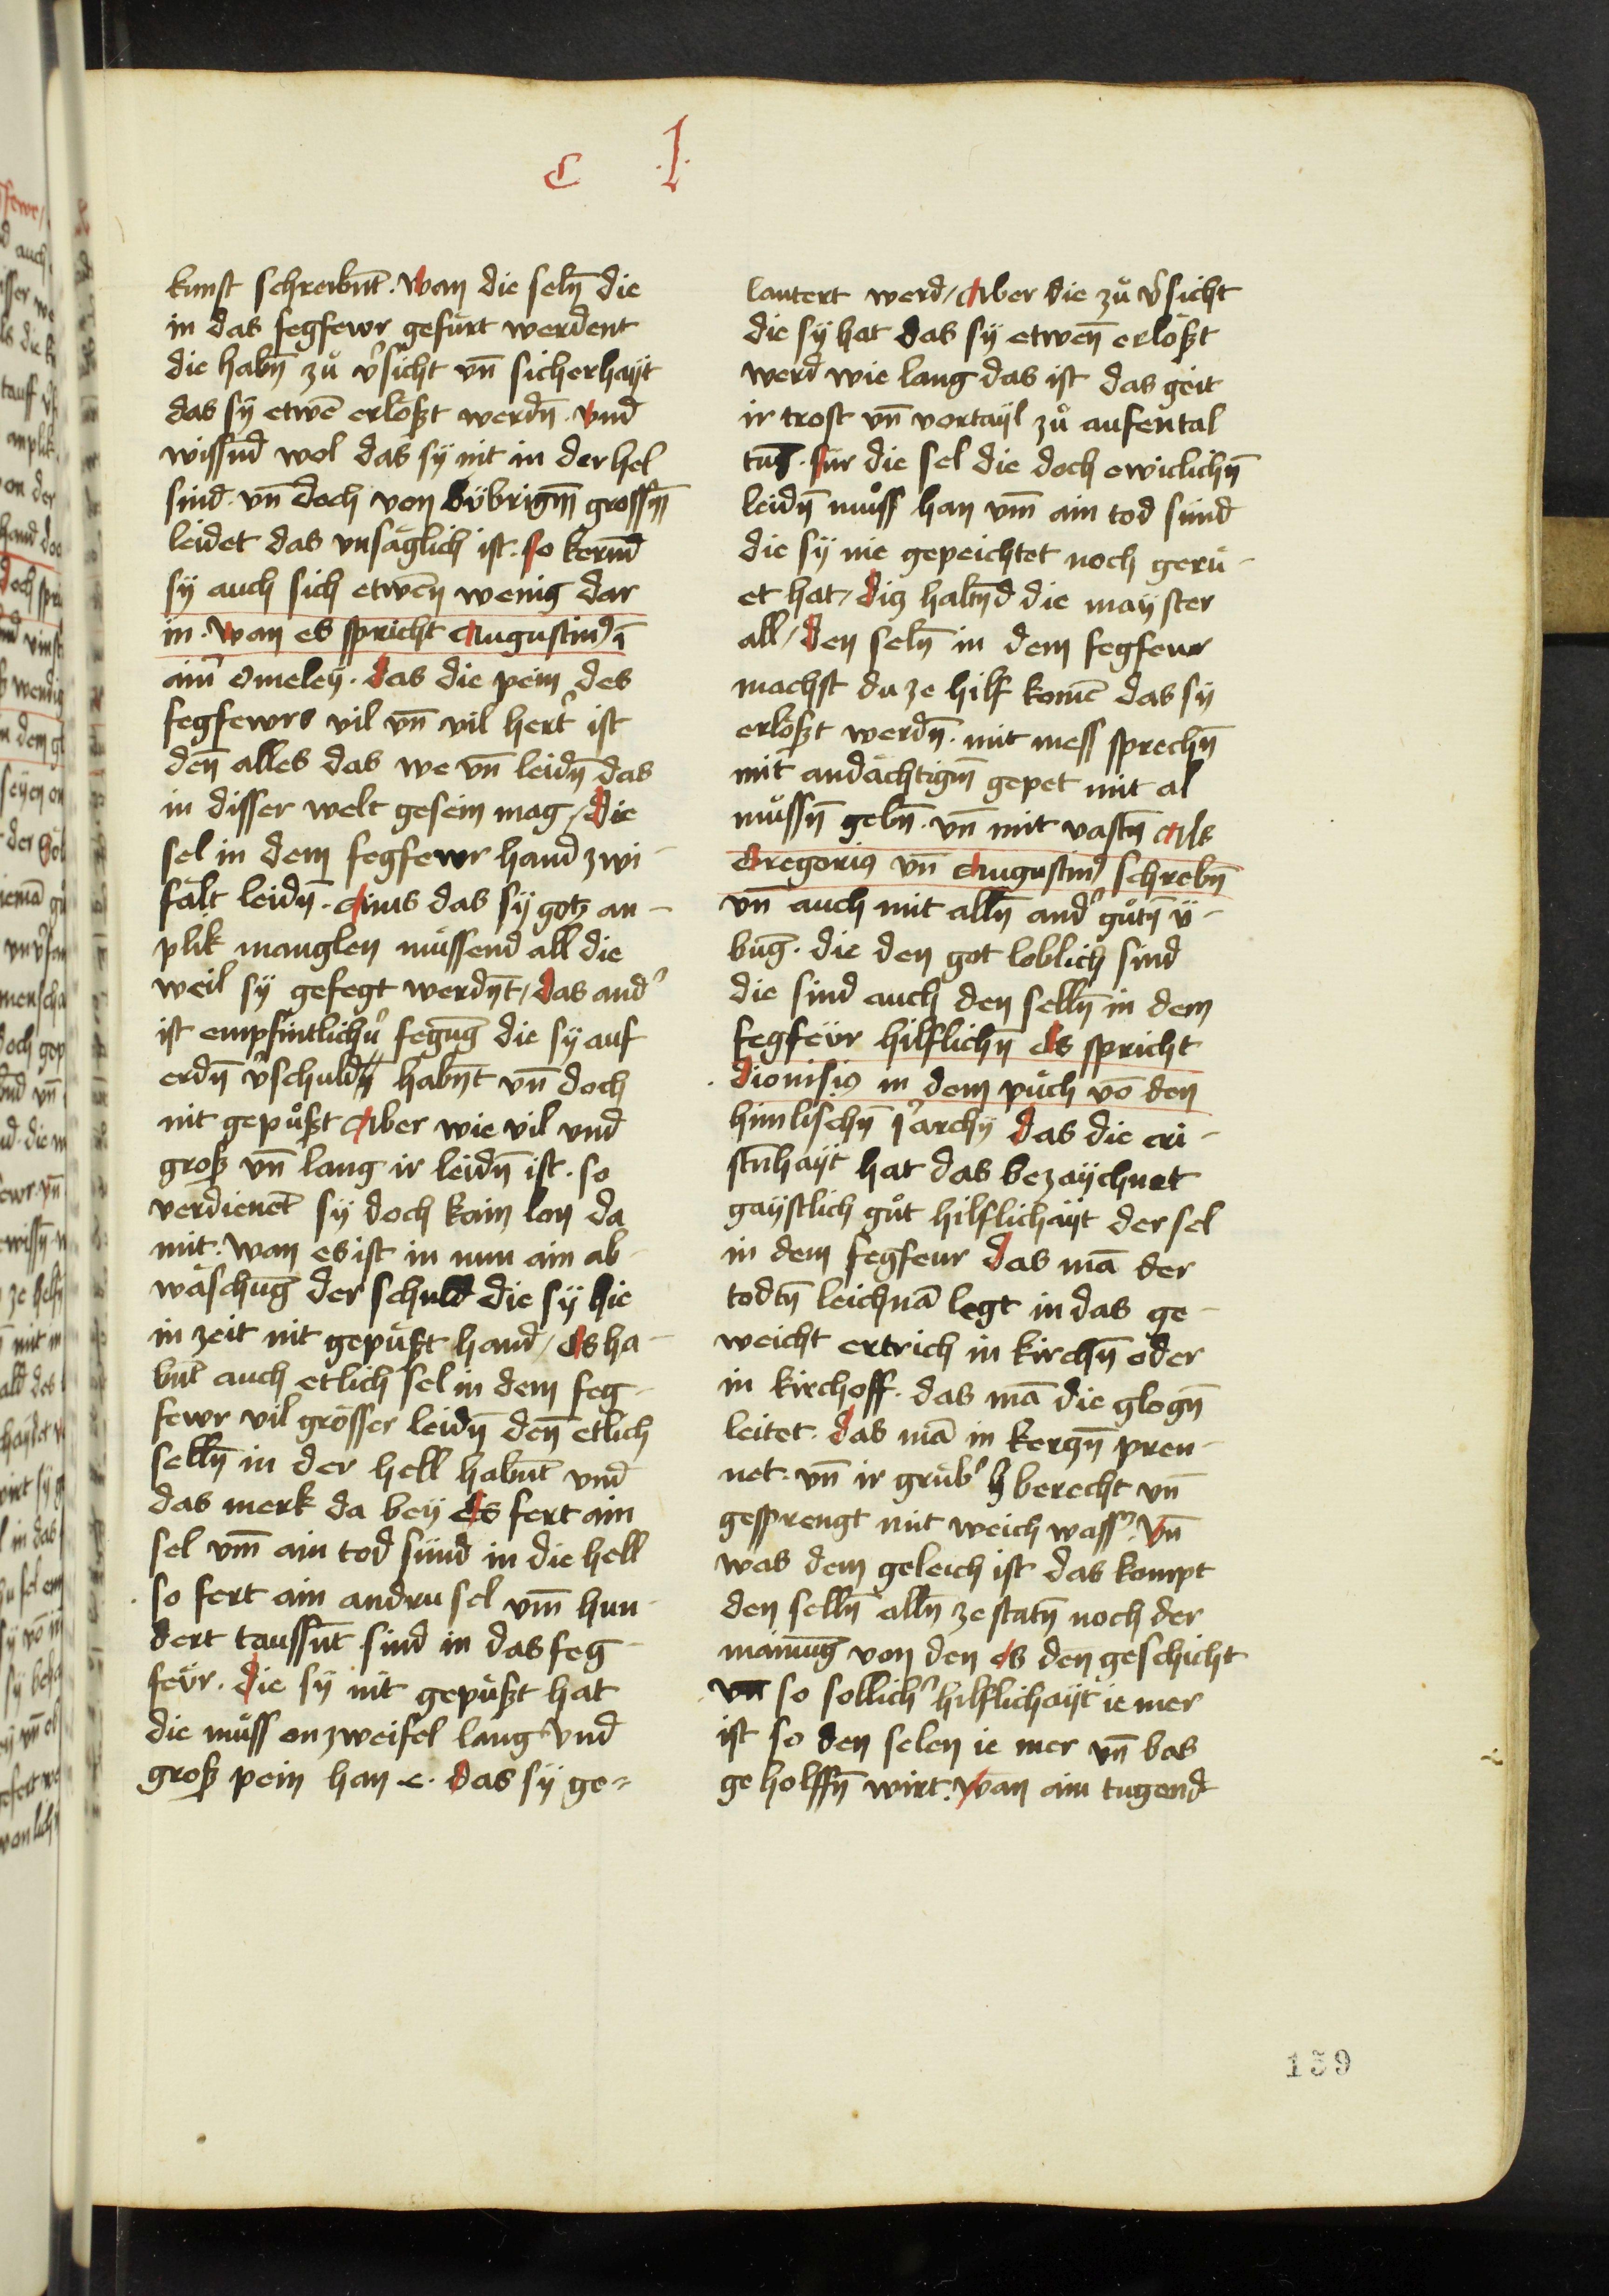 C .l.
kunst schreibnt̄. Wan die seln̄ die
in das fegfewr gefürt werdent
die habn̄ zů v̾sicht vn̄ sicherhayt
das sÿ etwē erlößt werdn̄. Vnd
wissnd wol das sÿ nit in der hel
sind. vn̄ doch von übrigm̄ grossn̄
leidet das vnsäglich ist. so kernd
sÿ auch sich etwen̄ wenig dar
in. Wan es spricht Augustin9 ī
aim̄ Omeleÿ. das die pein des
fegfewrs vil vn̄ vil hert̾ ist
den̄ alles das we vn̄ leidn̄ das
in disser welt gesein mag / die
sel in dem fegfewr hand zwi-
fält leidn̄. Ains das sÿ gotz an-
plik manglen müssend all die
weil sÿ gefegt werdn̄t / das and̾
ist empfintlichü fegūg die sÿ auf
erdn̄ v̾schuldn̄ habn̄t vn̄ doch
nit gepůßt Aber wie vil vnd
groß vn̄ lang ir leidn̄ ist. so
verdienēt sÿ doch kain lon da
mit. Wan es ist in nun ain ab-
wäschūg der schuld die sÿ hie
in zeit nit gepüßt hand / Es ha-
bnt̄ auch etlich sel in dem feg-
fewr vil grösser leidn̄ den̄ etlich
selln̄ in der hell habnt̄ vnd
das merk da beÿ Es fert ain
sel vm̄ ain tod sünd in die hell
so fert ain andru sel vm̄ hun-
dert taussnt̄ sünd in das feg-
feür. die sÿ nit gepüßt hat
die můss on zweifel lang vnd
groß pein han e. das sÿ ge=
lautert werd / Aber die zů v̾sicht
die sÿ hat das sÿ etwen̄ erlößt
werd wie lang das ist das geit
ir trost vn̄ vortayl zů aufental
tūg. für die sel die doch ewiclichn̄
leidn̄ můss han vm̄ ain tod sünd
die sÿ nie gepeichtet noch gerü-
et hat / diz habn̄d die mayster
all / den seln̄ in dem fegfeur
machst du ze hilf komē das sÿ
erlößt werdn̄. mit mess sprechn̄
mit andächtigm̄ gepet mit al
můssn̄ gebn̄. vn̄ mit vastn̄ Als
Gregorius vn̄ Augustin9 schrebn̄
vn̄ auch mit alln̄ and̾ gůtn̄ ü-
būg. die den got loblich sind
die sind auch den selln̄ in dem
fegfeür hilflichn̄ Es spricht
Dionisi9 in dem půch vō den
himlischn̄ j̾archÿ das die cri-
stnhayt hat das bezaychnet
gaystlich gůt hilflichayt der sel
in dem fegfeur das mā der
todtn̄ leichnā legt in das ge-
weicht ertrich in kirchn̄ oder
in kirchoff. das mā die glogn̄
leitet. das mā in kerzn̄ pren-
net. vn̄ ir grüb̾ berecht vn̄
gesprengt mit weich wass̾. Vn̄
was dem geleich ist das kompt
den selln̄ alln̄ ze statn̄ noch der
mainūg von den es den geschicht
so sollich̾ hilflichayt ie mer
ist so den selen ie mer vn̄ bas
ge holffn̄ wirt. Wan ain tugend
159